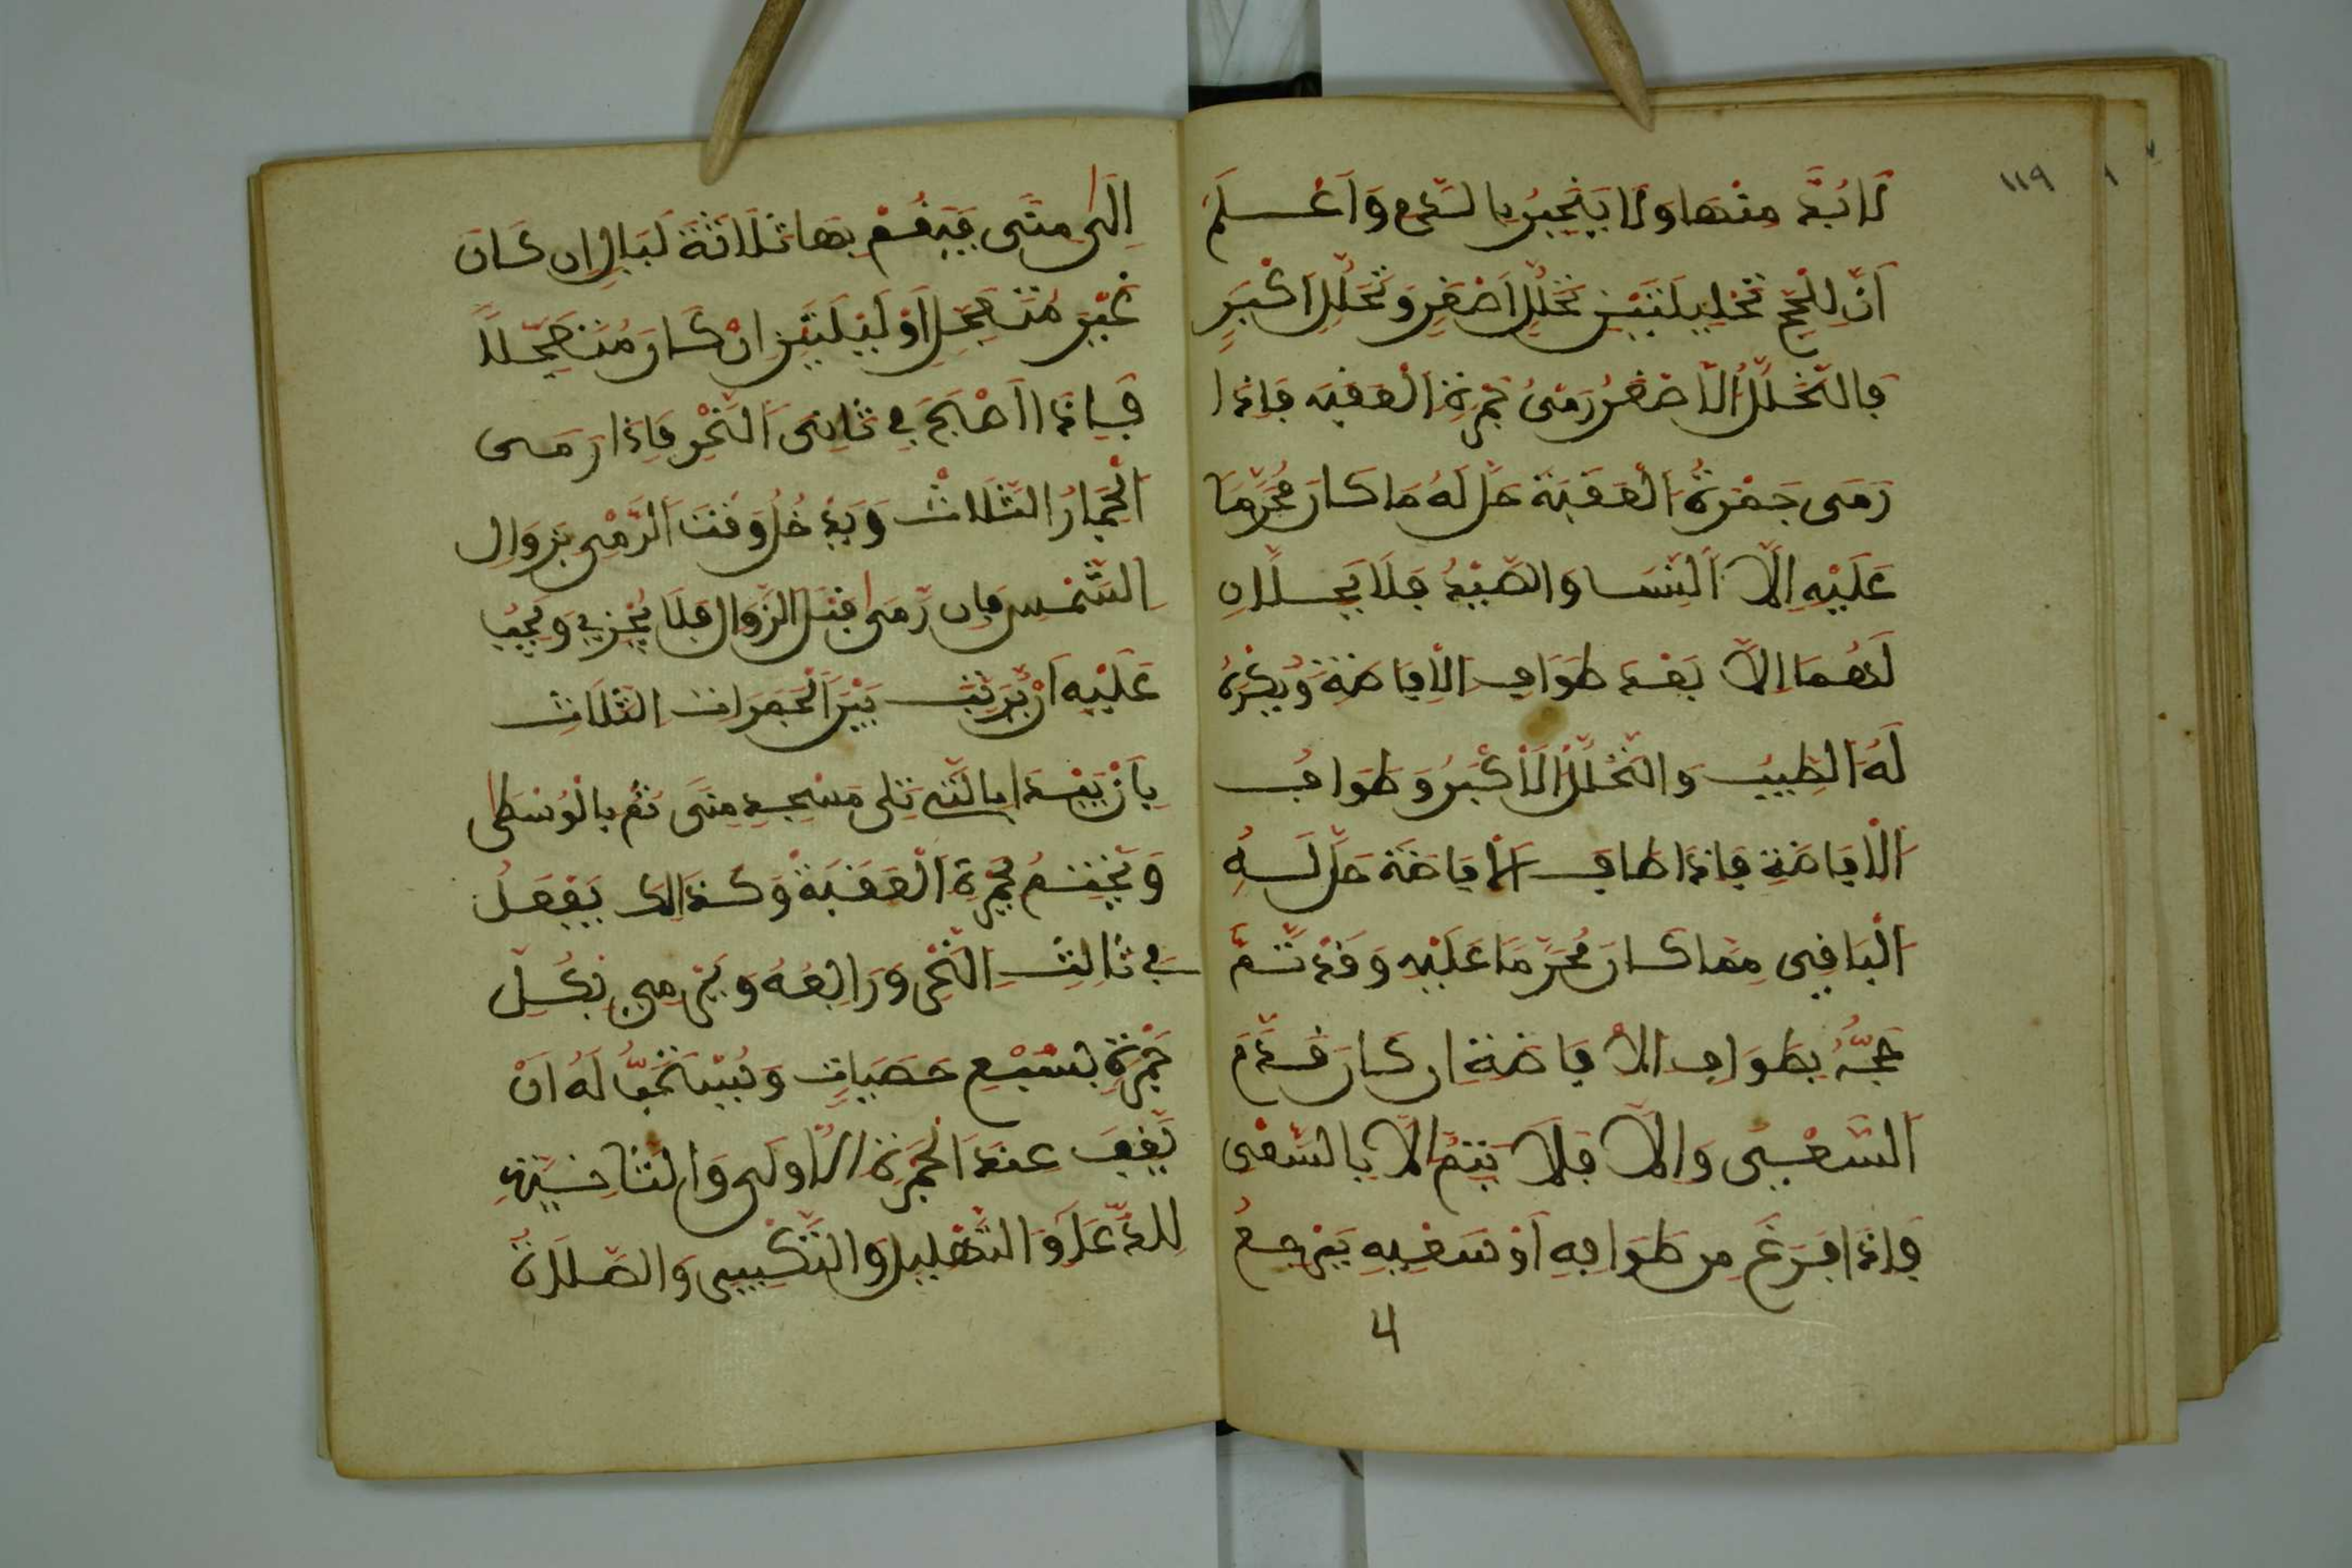 ١١٩
لَا بُدَّ مِنْهَا وَلَا يَنْجَبِرُ بِالدَّمِ وَاَعْلَمْ
اَنَّ لِلْحَجِّ تَحْلِيلَتَيْنِ تَحَلُّلِ اَصْغَرِ وَتَحَلُّلِ اَكْبَرِ
فَالتَّحَلُّلُ الْاَصْغَرُ رَمْيُ جَمْرَةِ الْعَقَبَه فَاِذَا
رَمَى جَمْرَةُ الْعَقَبَة حَلَّ لَهُ مَا كَانَ مُحَرَّمَا
عَلَيْهِ اِلَّا النِّسَا وَالصَّيْدُ فَلَا يَحِلَّانِ
لَهُمَا اِلَّا بَعْدَ طَوَافِ الْاِفَاضَة وَيُكْرَهُ
لَهُ الطِّيبُ وَالتَّحَلُّلُ الْاَكْبَرُ وَطَوَافُ
الْاِفَاضَةِ فَاِذَا طَافَ الْاِفَاضَة حَلَّ لَهُ
الْبَاقِي مِمَّا كَانَ مُحَرَّمَا عَلَيْهِ وَقَدْ تَمَّ
حَجُّهُ بِطَوَافِ الْاِفَاضَةِ اِن كَانَ قَدَّمَ
السَّعْيَ وَاِلَّا فَلَا يَتِمُّ اِلَّا بِالسَّعْيِ
فَاِذَا فَرَغَ مِن طَوَافِهِ اَوْ سَعْيِهِ يَرْجِعُ
4
اِلَى مِنَى فَيُقِمْ بِهَا ثَلَاثَةَ لَيَالٍ اِن كَانَ
غَيْرَ مُتَعَجِّلِ اَوْ لَيْلَتَيْنِ اِنْ كَانَ مُتَعَجِّلاً
فَاِذَا اَصْبَحَ فِي ثَانِيَ النَّحْرِ فَاِذَا رَمَى
الْجِمَارُ الثَّلَاثْ وَيَدْخُلُ وَقْتَ الرَّمْيِ بِزَوَالِ
الشَّمْسِ فَاِن رَّمَى قَبْلَ الزَّوَالِ فَلَا يُجْزِي وَيَجِبُ
عَلَيْهِ اَنْ يُرَتِّبَ بَيْنَ الْجَمَرَات الثَّلَاثِ
بِاَنْ يَبْدَا بِالَّتِي تَلِى مَسْجِدِ مِنَى ثُمَّ بِالْوُسْطَى
وَيَخْتِمُ بِجَمْرَةِ الْعَقَبَةْ وَكَذَالِكَ يَفْعَلُ
فِي ثَالِثِ النَّحْرِ وَرَابِعُهُ وَيَرْمِي بِكُلِّ
جَمْرَةٍ بِسَبْعِ حَصَيَاتٍ وَيُسْتَحَبُّ لَهُ اَنْ
يَقِفَ عِنْدَ الْجَمْرَةِ الْاُولَى وَالثَّانِيَةِ
لِلدُّعَاءِ وَالتَّهْلِيلِ وَالتَّكْبِيرِ وَالصَّلَاةُ